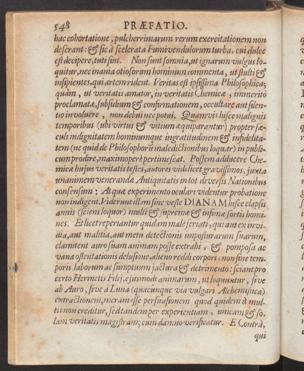 548 PRÆFATIO.
hac cohortatione, pulcherrimarum rerum exercitationem non
deserant: & sic à scelerata Fumivendulorum turba, cui dulce
est decipere, tuti sint. Non somnia, ut ignarum vulgus lo-
quitur, nec inania otiosorum hominum commenta, ut stulti &
insipientes, qui artem rident. Veritas est ipsissima Philosophica;
quàm, ut veritatis amator, in veritatis Chemicæ, immeritò
proclamatæ, subsidium & confirmationem, occultare aut silen-
tio involvere, non debui nec potui. Quamvis hisce malignis
temporibus (ubi virtus & vitium æquiparantur) propter sæ-
culi indignitatem hominumque ingratitudinem & infidelita-
tem (ne quid de Philosophorum maledictionibus loquar) in publi-
cum prodire, maximopere pertimescat. Possem adducere Che-
mica hujus veritatis testes, autores videlicet gravissimos, juxta
unanimem venerandæ Antiquitatis in tot diversis Nationibus
consensum; Atqua experimento oculari videntur probatione
non indigent. Viderunt illam sine veste DIANAM hisce elapsis
annis (sciens loquor) multi & supremæ & infimæ sortis homi-
nes. Et licet reperiantur quidam malè feriati, qui aut ex invi-
dia, aut malitia, aut metu detectionis imposturarum suarum,
clamitent auro suam animam posse extrahi, & pomposa ac
vana ostentationis delusione alieno reddi corpori: non sine tem-
poris laborum ac sumptuum jactura & detrimento: sciant pro
certo Hermetis Filij, ejusmodi animarum, ut loquuntur, sive
ab Auro, sive à Luna (quacunque via vulgari Alchemistica)
extractionem, meram esse persuasionem: quod quidem à mul-
tis non creditur, sed tandem per experientiam, unicam & so-
lam veritatis magistram, cum damno verificatur. E Contrà,
qui